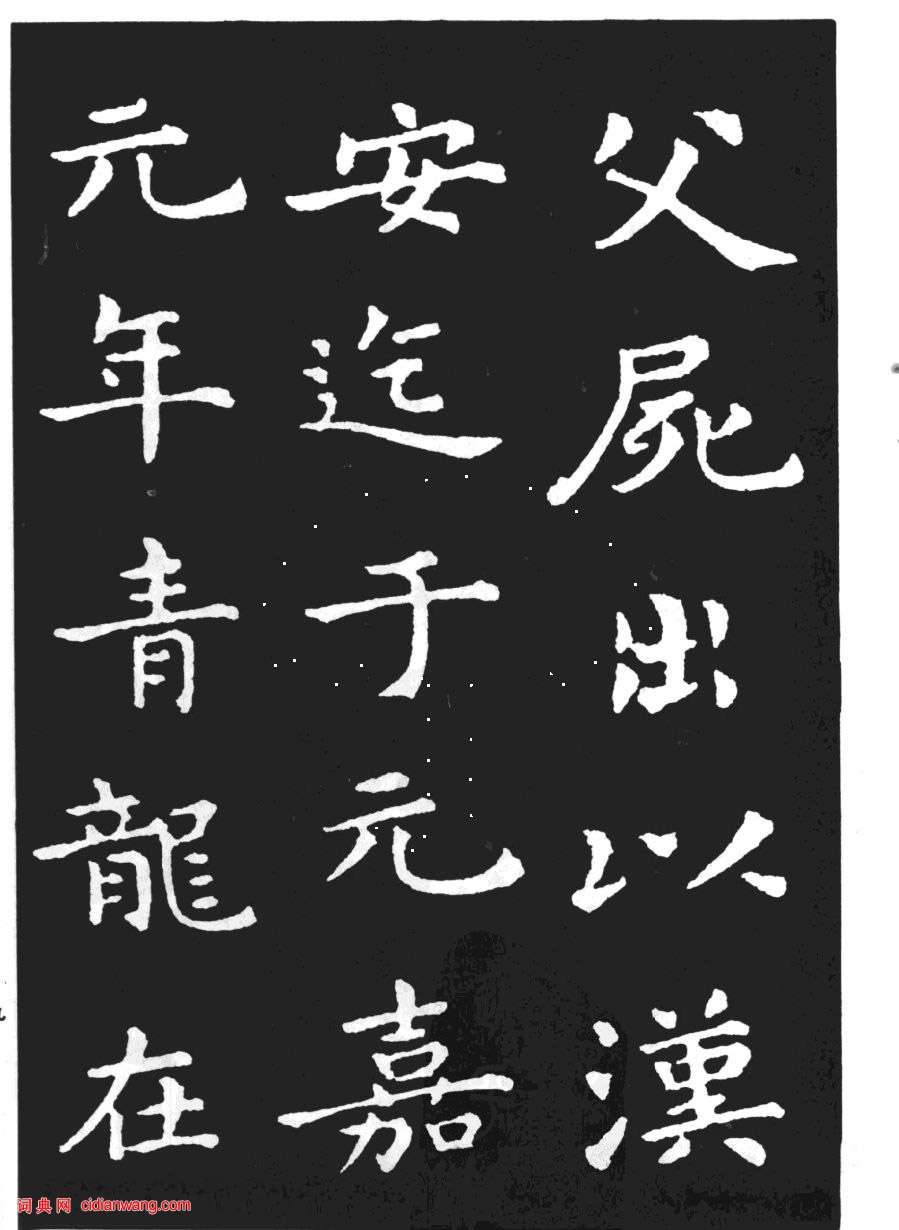 父屍出以漢
安迄于元嘉
元年青龍在
词典网 cidianwang.com